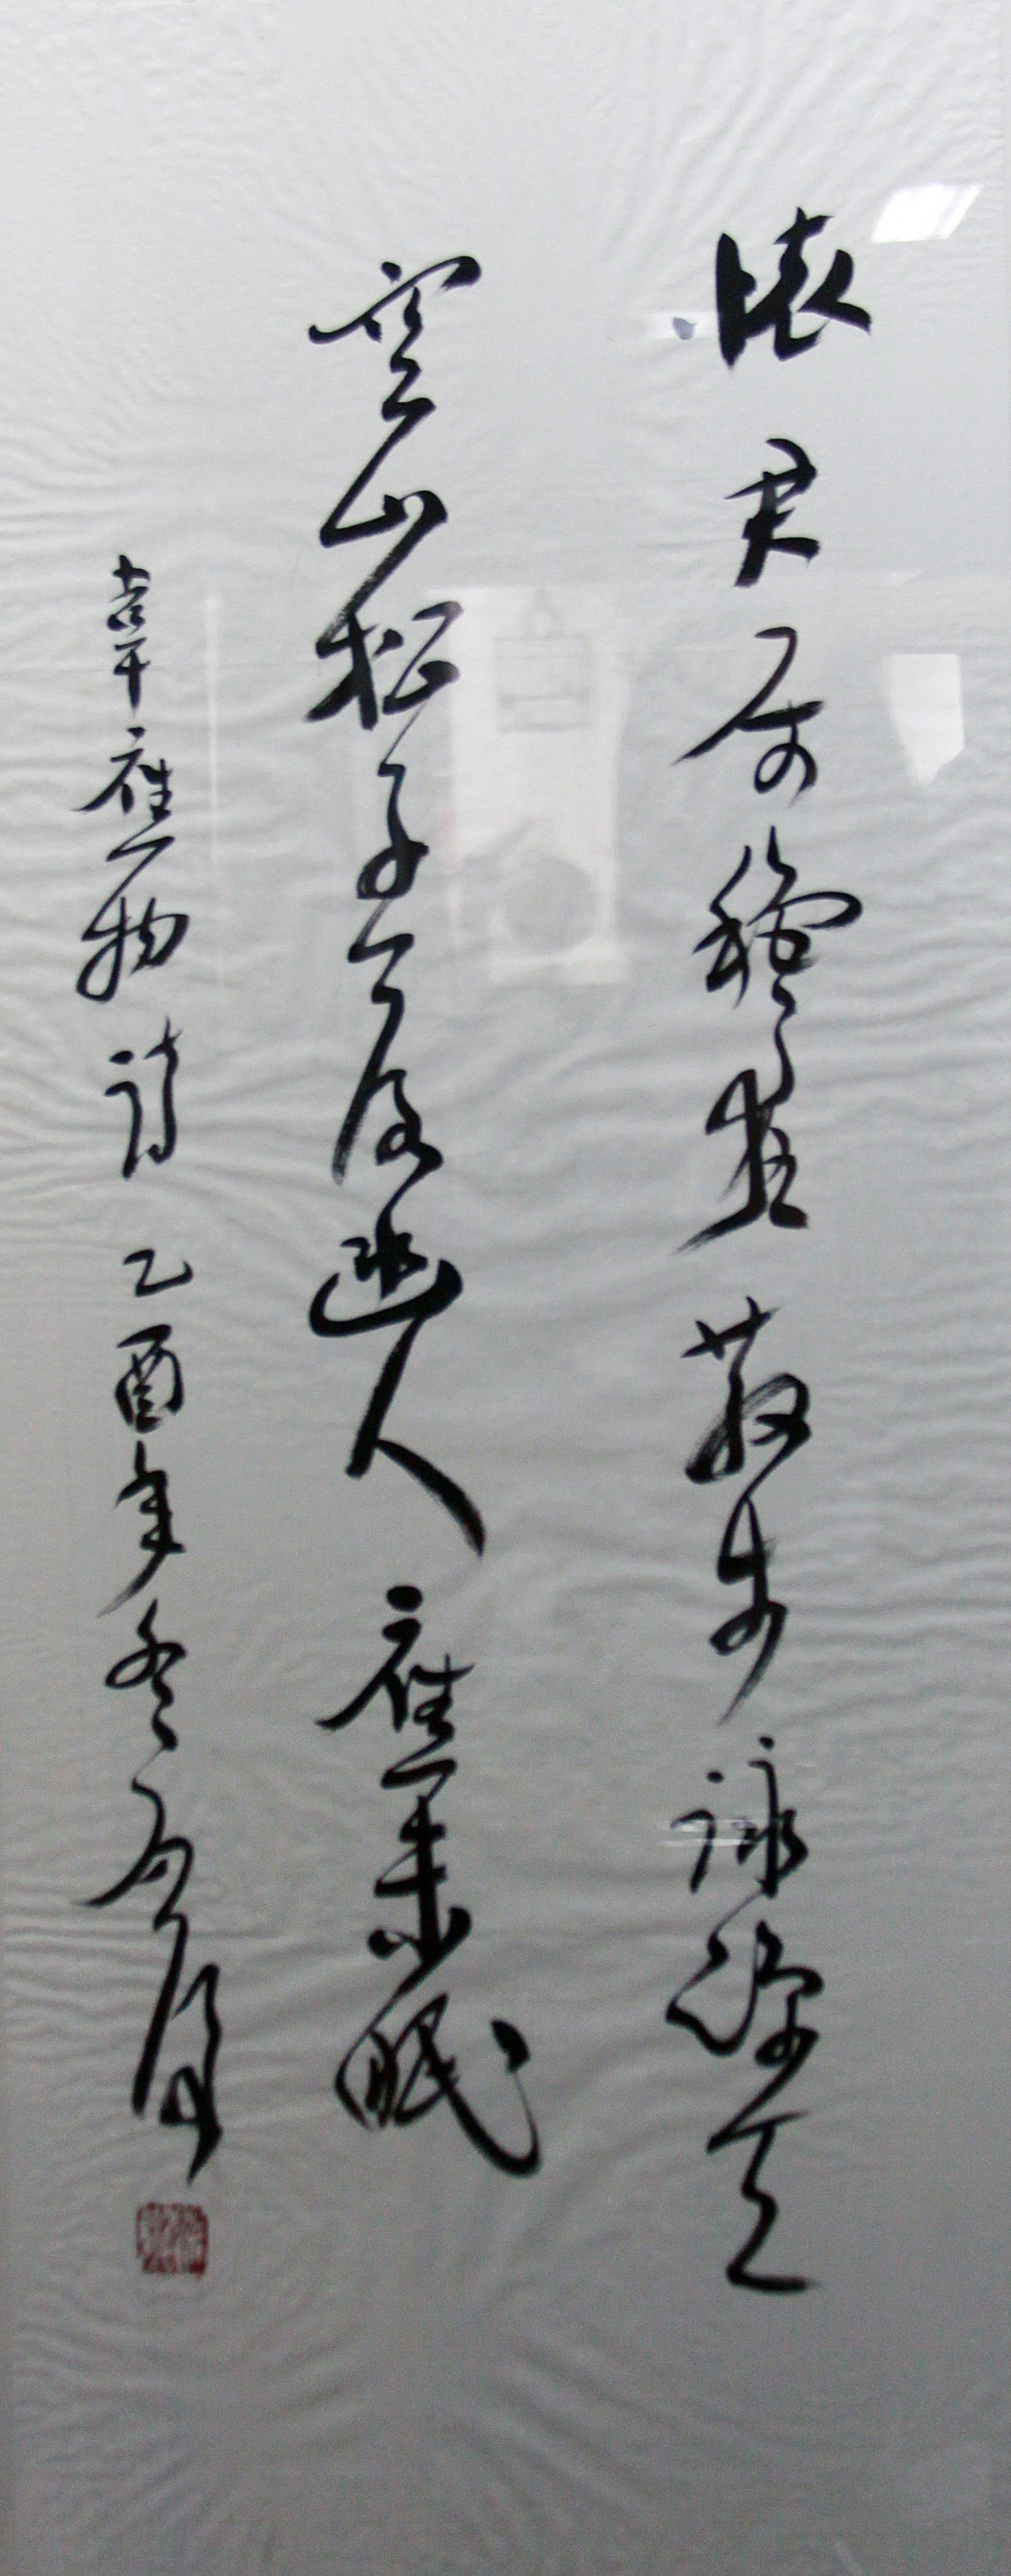 懷君屬穐夜散步詠涼天
空山松子落幽人應未眠
韋應物詩乙酉年冬月